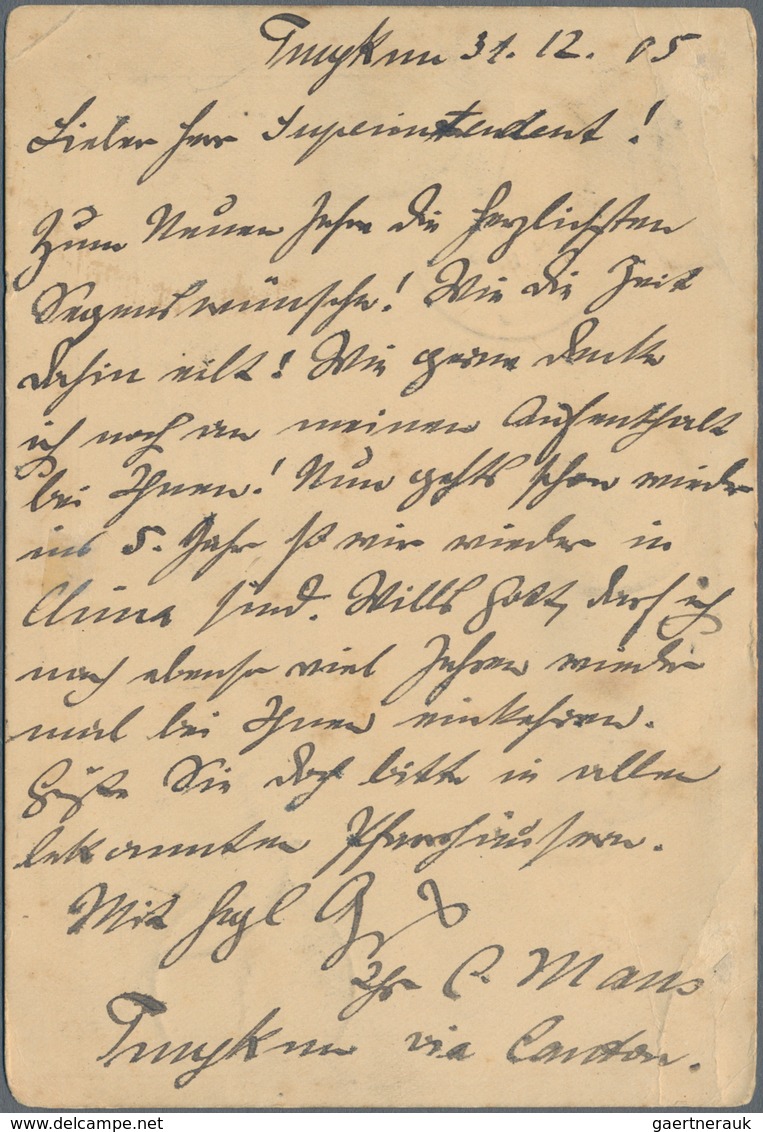 Tungkun 31. 12. 05
Lieber Herr Superintendent!
Zum Neuen Jahre die herzlichsten
Segenswünsche! Wie die Zeit
dahin eilt! Wie gerne denke
ich noch an meinen Aufenthalt
bei Ihnen! Nun gehts schon wieder
ins 5. Jahr daß wir wieder in
China sind. Wills Gott, darf ich
nach ebenso viel Jahren wieder
mal bei Ihnen einkehren.
Grüße Sie doch bitte in allen
bekannten Pfarrhäusern.
Mit herzl Gruß
Ihr C. Maus
Tungkun via Canton.
gaertnerauk